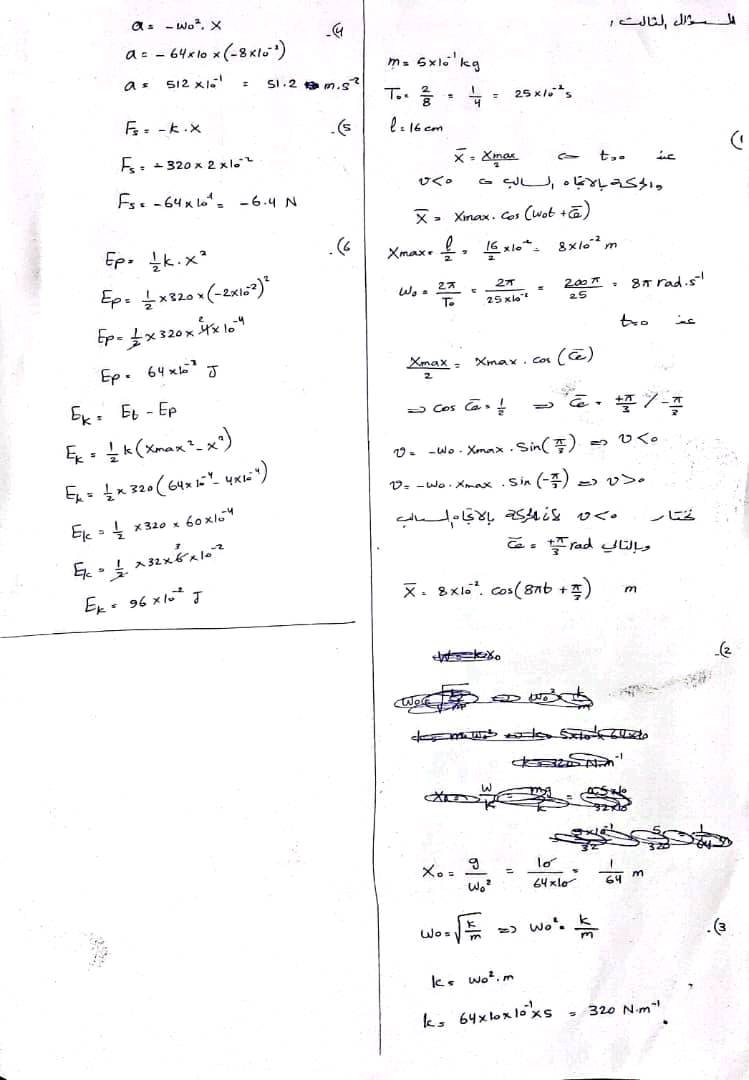 السؤال الثالث :
m = 5x10⁻¹ kg
T₀ = 2/8 = 1/4 = 25x10⁻² s
l = 16 cm
(1
عند t=0 ⇐ x̄ = Xmax/2
والحركة بالاتجاه السالب ⇐ v<0
x̄ = Xmax. cos (ω₀t + φ̄)
Xmax = l/2 = 16/2 x10⁻² = 8x10⁻² m
ω₀ = 2π/T₀ = 2π/25x10⁻² = 200π/25 = 8π rad.s⁻¹
عند t=0
Xmax/2 = Xmax. cos (φ̄)
⇒ cos φ̄ = 1/2 ⇒ φ̄ = +π/3 / -π/3
v = -ω₀. Xmax. Sin(π/3) ⇒ v<0
v = -ω₀. Xmax. Sin(-π/3) ⇒ v>0
نختار v<0 لأن الحركة بالاتجاه السالب
وبالتالي φ̄ = +π/3 rad
x̄ = 8x10⁻². cos(8πt + π/3) m
.(2
X₀ = g/ω₀² = 10/64x10 = 1/64 m
.(3
ω₀ = √k/m ⇒ ω₀² = k/m
k = ω₀². m
k = 64x10x10⁻¹x5 = 320 N.m⁻¹.
.(4
a = -ω₀². X
a = -64x10 x (-8x10⁻²)
a = 512 x10⁻¹ = 51.2 m.s⁻²
.(5
Fs = -k.X
Fs = -320 x 2x10⁻²
Fs = -64x10⁻¹ = -6.4 N
.(6
Ep = 1/2 k.x²
Ep = 1/2 x320x(-2x10⁻²)²
Ep = 1/2 x320x 4x10⁻⁴
Ep = 64x10⁻³ J
Ek = Et - Ep
Ek = 1/2 k(Xmax² - x²)
Ek = 1/2 x 320(64x10⁻⁴ - 4x10⁻⁴)
Ek = 1/2 x320 x 60x10⁻⁴
Ek = 1/2 x32x6x10⁻²
Ek = 96x10⁻² J